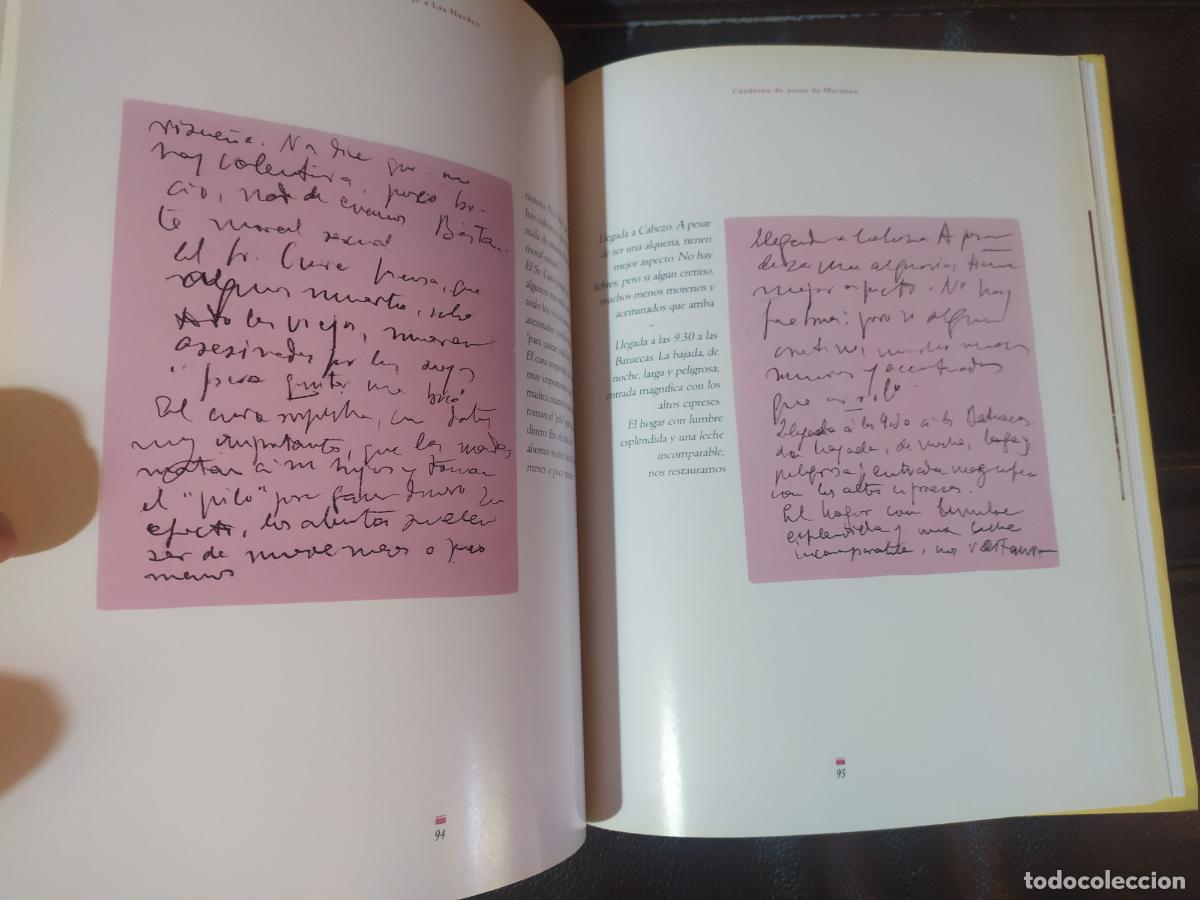 a Las Hurdes
risueña. No dice que no
hay calentura, poco bo-
cio, nada de enanos. Bastan-
te moral sexual
El Sr. Cura piensa, que
algunos muertos, sobre
todo los viejos, mueren
asesinados por los suyos
"para quitar una boca"
El cura sospecha, con datos
muy importantes, que las madres
matan a sus hijos y toman
el "pilo" por ganar dinero En
efecto, los abortos suelen
ser de nueve meses o poco
menos
hay
nada de
moral sexual
El Sr. Cura
algunos
todo los
asesinados
"para quitar
El cura
muy
madres
toman el "pilo"
dinero En
abortos
meses o poco
94
Cuaderno de notas de Marañón
Llegada a Cabezo. A pesar
de ser una alquería, tienen
mejor aspecto. No hay
fiebres; pero si algún cretino,
muchos menos morenos y
aceitunados que arriba
-
Llegada a las 9.30 a las
Batuecas. La bajada, de
noche, larga y peligrosa,
entrada magnífica con los
altos cipreses.
El hogar con lumbre
espléndida y una leche
incomparable,
nos restauramos
Llegada a Cabezo. A pesar
de ser una alquería, tienen
mejor aspecto. No hay
fiebres; pero si algun
cretino, muchos menos
morenos y aceitunados
que
Llegada a las 9.30 a las Batuecas.
La bajada, de noche, larga y
peligrosa; entrada magnifica
con los altos cipreses.
El hogar con lumbre
esplendida y una leche
incomparable, nos restauramos
95
todocoleccion